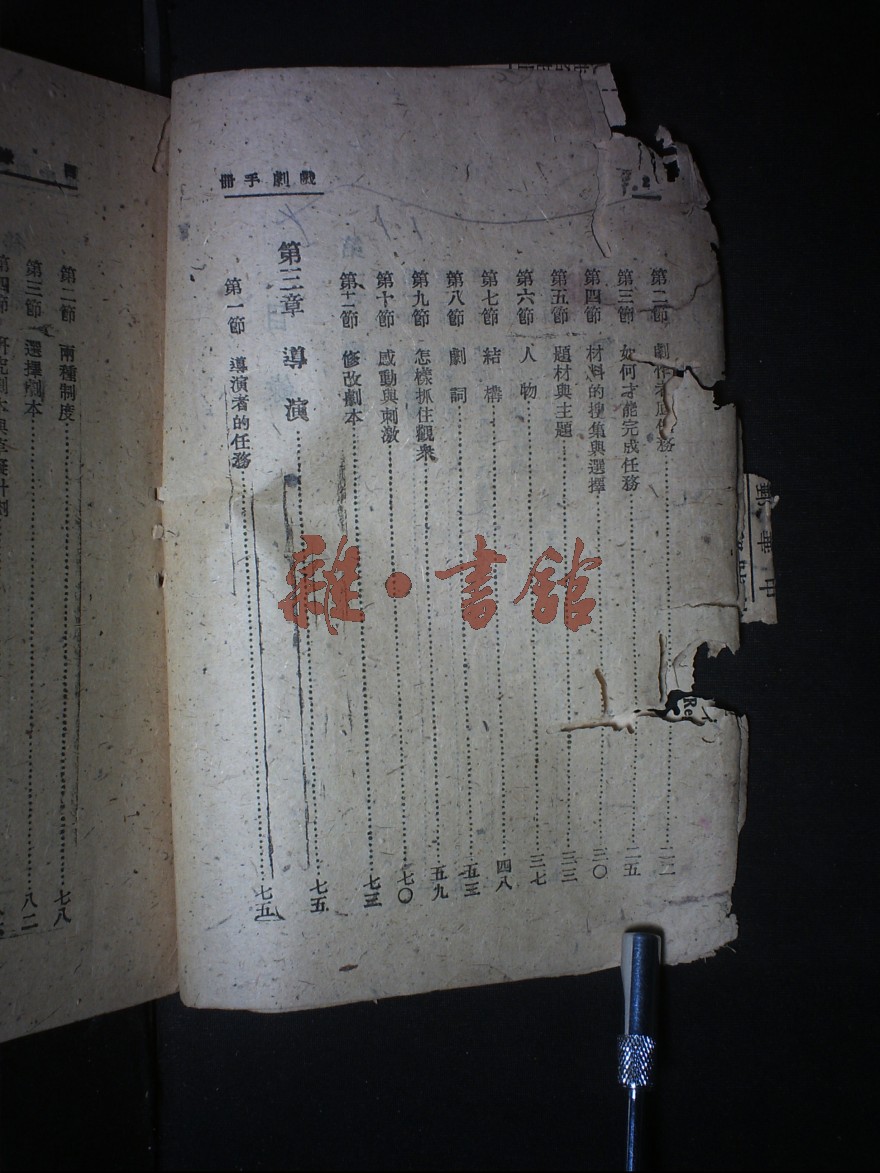 戲劇手冊
第二節 劇作者底任務 二二
第三節 如何才能完成任務 二五
第四節 材料的搜集與選擇 三〇
第五節 題材與主題 三三
第六節 人物 三七
第七節 結構 四八
第八節 劇詞 五三
第九節 怎樣抓住觀衆 五九
第十節 感動與刺激 七〇
第十一節 修改劇本 七三
第三章 導演 七五
第一節 導演者的任務 七五
第二節 兩種制度 七八
第三節 選擇劇本 八二
第四節
雜·書館
Re